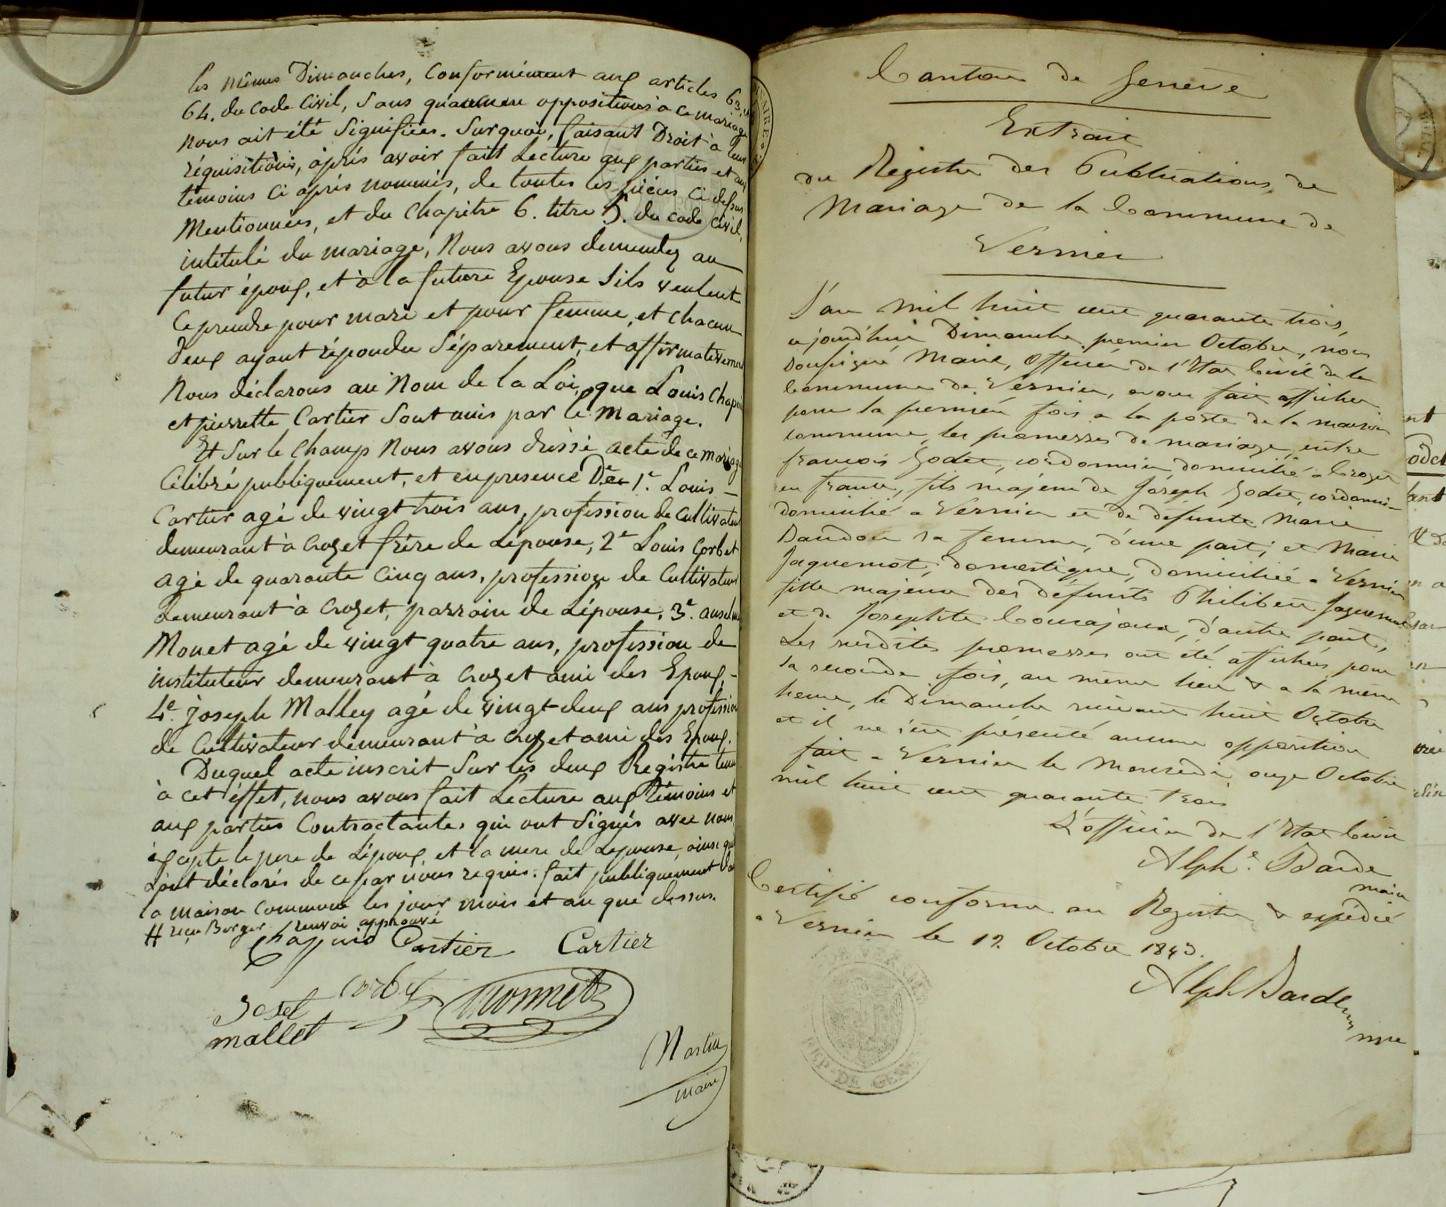 les mêmes Dimanches, Conformément aux articles 63. et
64. du Code Civil, Sans qu'aucune opposition a ce mariage
nous ait été Signifiée. Surquoi, faisant Droit à leur
réquisitions, après avoir fait Lecture aux parties et aux
témoins ci après nommés, de toutes les pièces ci dessus
Mentionnées, et du Chapitre 6. titre 5. du Code Civil,
intitulé du mariage, Nous avons demandez au
futur époux, et à la future Epouse S'ils veulent
Ce prendre pour mari et pour femme, et Chacun
Deux ayant répondu Séparement, et affirmativement
Nous déclarons au Nom de la Loi, que Louis Chapuis
et pierrette Cartier Sont unis par le Mariage.
Et Sur le Champ Nous avons dressé acte de ce mariage
Célébré publiquement, et en presence De 1r. Louis
Cartier agé de vingt trois ans, profession de Cultivateur
demeurant à Crozet frère de Lépouse, 2e Louis Corbet
agé de quarante Cinq ans, profession de Cultivateur
demeurant à Crozet, parrain de Lépouse, 3e. anselme
Monet agé de vingt quatre ans, profession de
instituteur demeurant à Crozet ami des Epoux,
4e. Joseph Malley agé de vingt deux ans profession
de Cultivateur demeurant à Crozet ami des Epoux.
Duquel acte inscrit Sur les deux Registre tenu
à cet éffet, nous avons fait Lecture aux témoins et
aux parties Contractantes qui ont Signés avec nous
éxcepté le pere de Lépoux, et la mere de Lepouse, ainsi quil
Lont déclarés de ce par nous requis. fait publiquement dans
la maison Commune les jour mois et an que dessus.
renvoi approuvé
Chappuis Cartier Cartier
Josef Corbet Monnet
mallet
Martin
maire
Canton de Genève
Extrait
du Registre des Publications de
Mariage de la Commune de
Vernier
L'an mil huit cent quarante trois,
aujourd'hui Dimanche premier Octobre, nous
soussigné Maire, Officier de l'Etat Civil de la
Commune de Vernier, avons fait afficher
pour la première fois a la porte de la maison
commune, les promesses de mariage, entre
françois Godet, cordonnier, domicilié a Crozet
en france, fils majeur de Joseph Godet, cordonnier
domicilié a Vernier et de defunte Marie
Daudon sa femme, d'une part; et Marie
Jaquemot, domestique, domiciliée a Vernier
fille majeure des défunts Philibert Jaquemot
et de Josephte Courajoux, d'autre part,
Les susdites promesses ont été affichées pour
la seconde fois, au même lieu & a la même
heure, le Dimanche suivant huit Octobre
et il ne s'est présenté aucune opposition
fait a Vernier le Mercredi onze Octobre
mil huit cent quarante trois
L'officier de l'Etat Civil
Alphe. Barde
maire
Certifié conforme au Registre & expédié
a Vernier le 12 Octobre 1843.
Alph Barde
mre